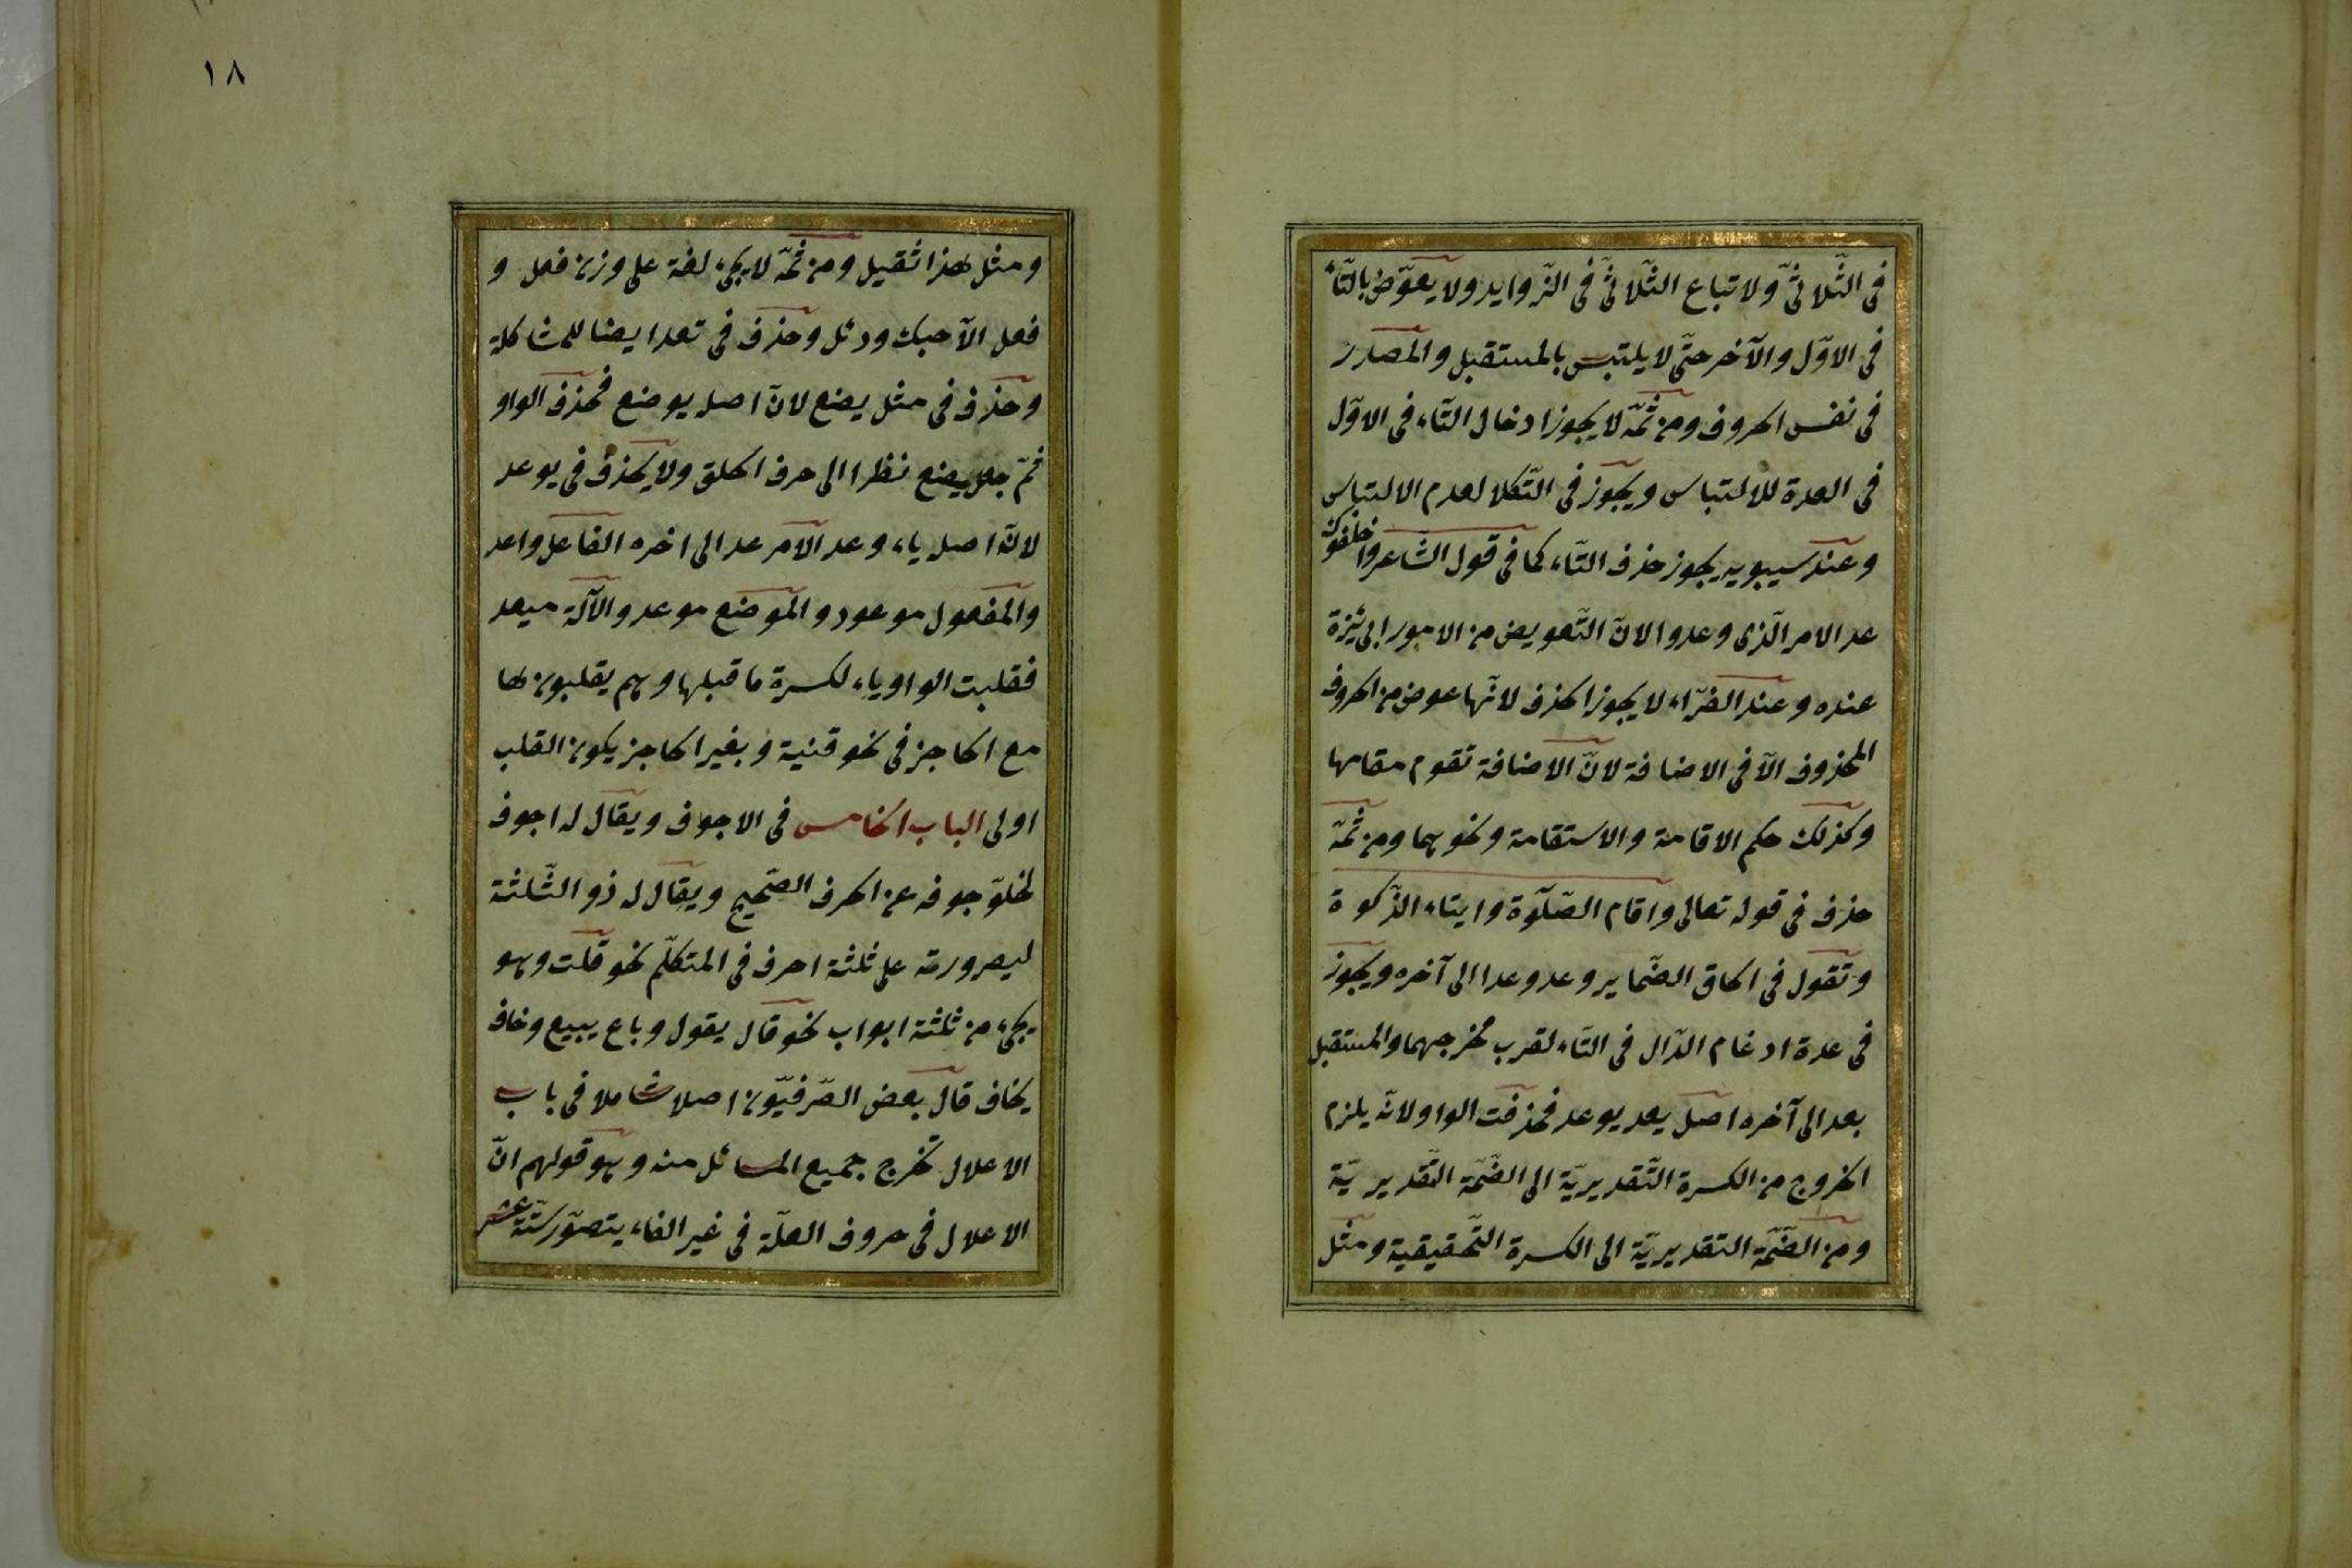 فى الثّلاثىّ ولاتباع الثّلاثىّ فى الزّوايد ولا يعوّض بالتّاء
فى الاوّل والآخر حتّى لا يلتبس بالمستقبل والمصدر
فى نفس الحروف ومن ثمّة لا يجوز ادخال التّاء فى الاوّل
فى العدة للالتباس ويجوز فى التّكلا لعدم الالتباس
وعند سيبويه يجوز حذف التّاء كما فى قول الشاعر واخلفوك
عد الامر الّذى وعدوا لانّ التّعويض من الامور الجايزة
عنده وعند الفرّاء لا يجوز الحذف لانّها عوض من الحروف
المحذوف الّا فى الاضافة لانّ الاضافة تقوم مقامها
وكذلك حكم الاقامة والاستقامة ونحوهما ومن ثمّة
حذف فى قوله تعالى واقام الصّلوة وايتاء الزّكوة
وتقول فى الحاق الضّماير وعد وعدا الى آخره ويجوز
فى عدة ادغام الدّال فى التّاء لقرب مخرجهما والمستقبل
يعد الى آخره اصل يعد يوعد فحذفت الواو لانّه يلزم
الخروج من الكسرة التّقديريّة الى الضّمّة التّقديريّة
ومن الضّمّة التقديريّة الى الكسرة التّحقيقية ومثل
١٨
ومثل هذا ثقيل ومن ثمّة لا يجىء لغة على وزن فعل و
فعل الّا حبك ودئل وحذف فى تعد ايضا للمشاكلة
وحذف فى مثل يضع لانّ اصله يوضع فحذف الواو
ثمّ جعل يضع نظرا الى حرف الحلق ولا يحذف فى يوعد
لانّ اصله ياء وعد الامر عد الى اخره الفاعل واعد
والمفعول موعود والموضع موعد والآلة ميعد
فقلبت الواو ياء لكسرة ما قبلها وهم يقلبون لها
مع الحاجز فى نحو قنية وبغير الحاجز يكون القلب
اولى الباب الخامس فى الاجوف ويقال له اجوف
لخلوّ جوفه عن الحرف الصّحيح ويقال له ذو الثّلثة
ليصرورته على ثلثة احرف فى المتكلّم نحو قلت وهو
يجىء من ثلثة ابواب نحو قال يقول وباع يبيع وخاف
يخاف قال بعض الصّرفيّون اصلا شاملا فى باب
الاعلال تخرج جميع المسائل منه وهو قولهم انّ
الاعلال فى حروف العلّة فى غير الفاء يتصوّر ستّة عشر